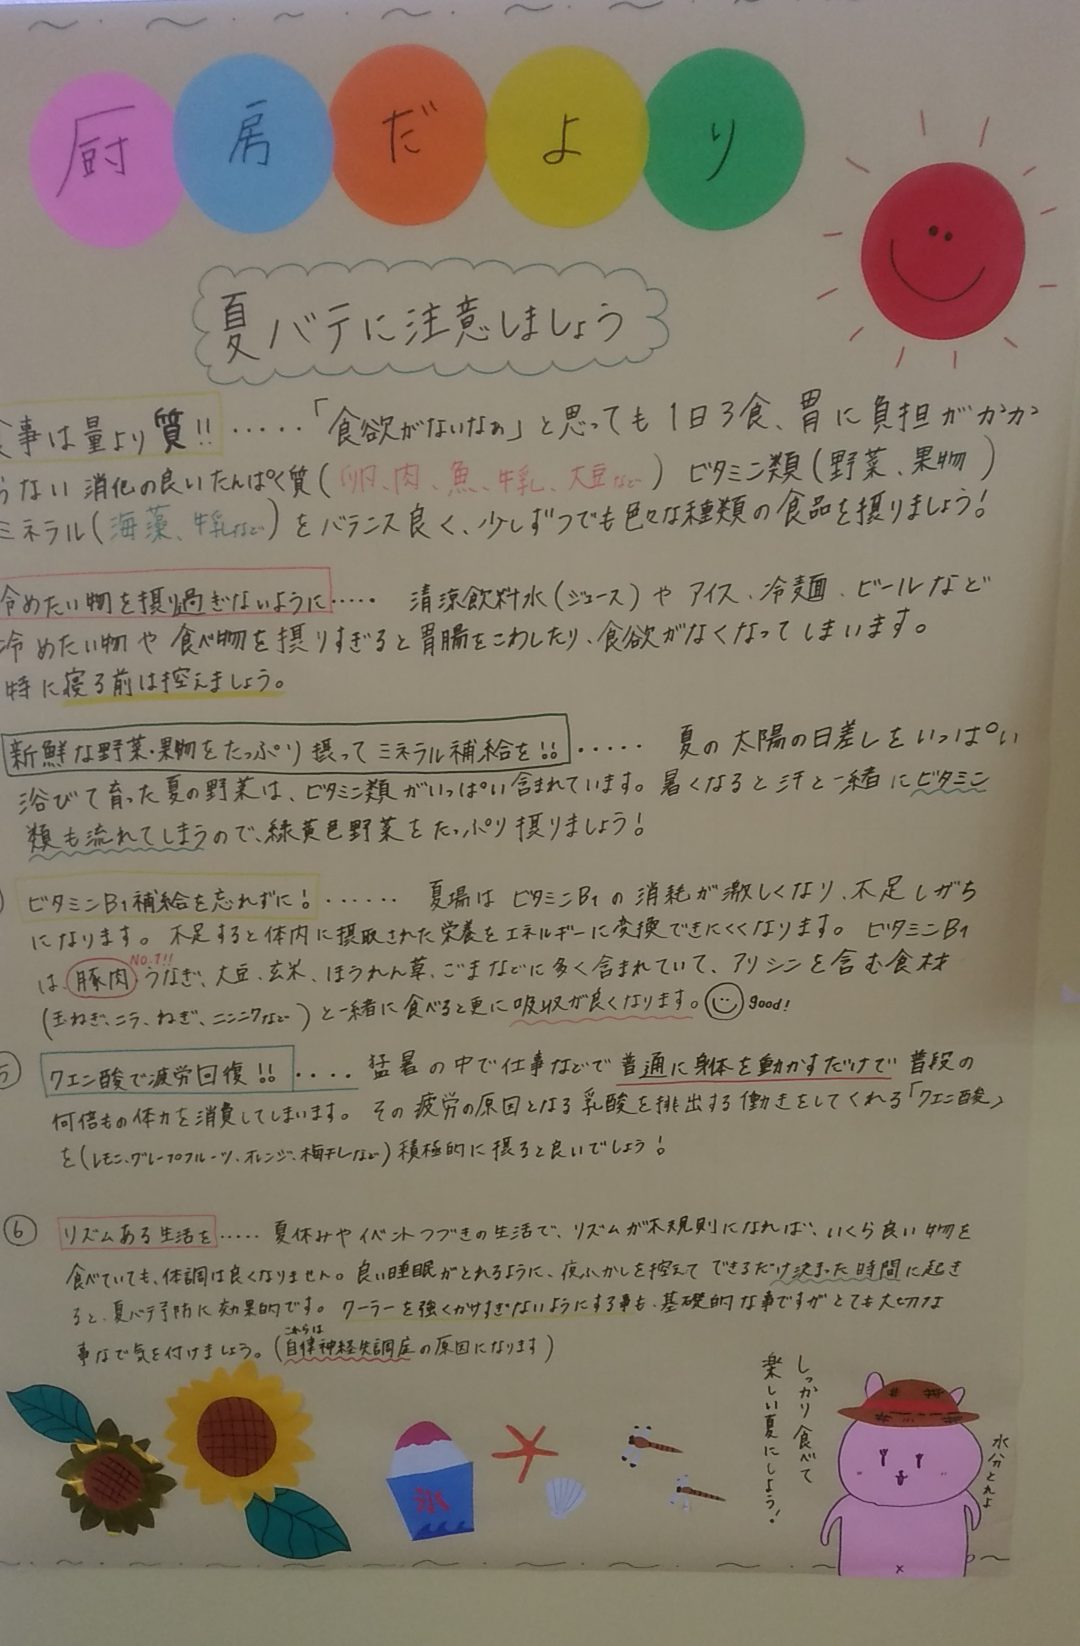 厨房だより
夏バテに注意しましょう
事は量より質!! ・・・・・ 「食欲がないなぁ」と思っても1日3食、胃に負担がかか
らない消化の良いたんぱく質(卵、肉、魚、牛乳、大豆など) ビタミン類(野菜、果物)
ミネラル(海藻、牛乳など)をバランス良く、少しずつでも色々な種類の食品を摂りましょう!
冷めたい物を摂り過ぎないように・・・・・ 清涼飲料水(ジュース)や アイス、冷麺、ビールなど
冷めたい物や食べ物を摂りすぎると胃腸をこわしたり、食欲がなくなってしまいます。
特に寝る前は控えましょう。
新鮮な野菜・果物をたっぷり摂ってミネラル補給を!! ・・・・・ 夏の太陽の日差しをいっぱい
浴びて育った夏の野菜は、ビタミン類がいっぱい含まれています。暑くなると汗と一緒にビタミン
類も流れてしまうので、緑黄色野菜をたっぷり摂りましょう!
ビタミンB1補給を忘れずに! ・・・・・・ 夏場は ビタミンB1の消耗が激しくなり、不足しがち
になります。不足すると体内に摂取された栄養をエネルギーに変換できにくくなります。ビタミンB1
No.1!!
は、豚肉、うなぎ、大豆、玄米、ほうれん草、ごまなどに多く含まれていて、アリシンを含む食材
(玉ねぎ、ニラ、ねぎ、ニンニクなど)と一緒に食べると更に吸収が良くなります。 good!
クエン酸で疲労回復!! ・・・・ 猛暑の中で仕事などで普通に身体を動かすだけで普段の
何倍もの体力を消費してしまいます。その疲労の原因となる乳酸を排出する働きをしてくれる「クエン酸」
を(レモン、グレープフルーツ、オレンジ、梅干しなど)積極的に摂ると良いでしょう!
⑥ リズムある生活を・・・・・ 夏休みやイベントつづきの生活で、リズムが不規則になれば、いくら良い物を
食べていても、体調は良くなりません。良い睡眠がとれるように、夜ふかしを控えてできるだけ決まった時間に起き
ると、夏バテ予防に効果的です。クーラーを強くかけすぎないようにする事も、基礎的な事ですがとても大切な
これらは
事なので気を付けましょう。(自律神経失調症の原因になります)
しっかり食べて
楽しい夏にしよう!
水分とれよ
氷